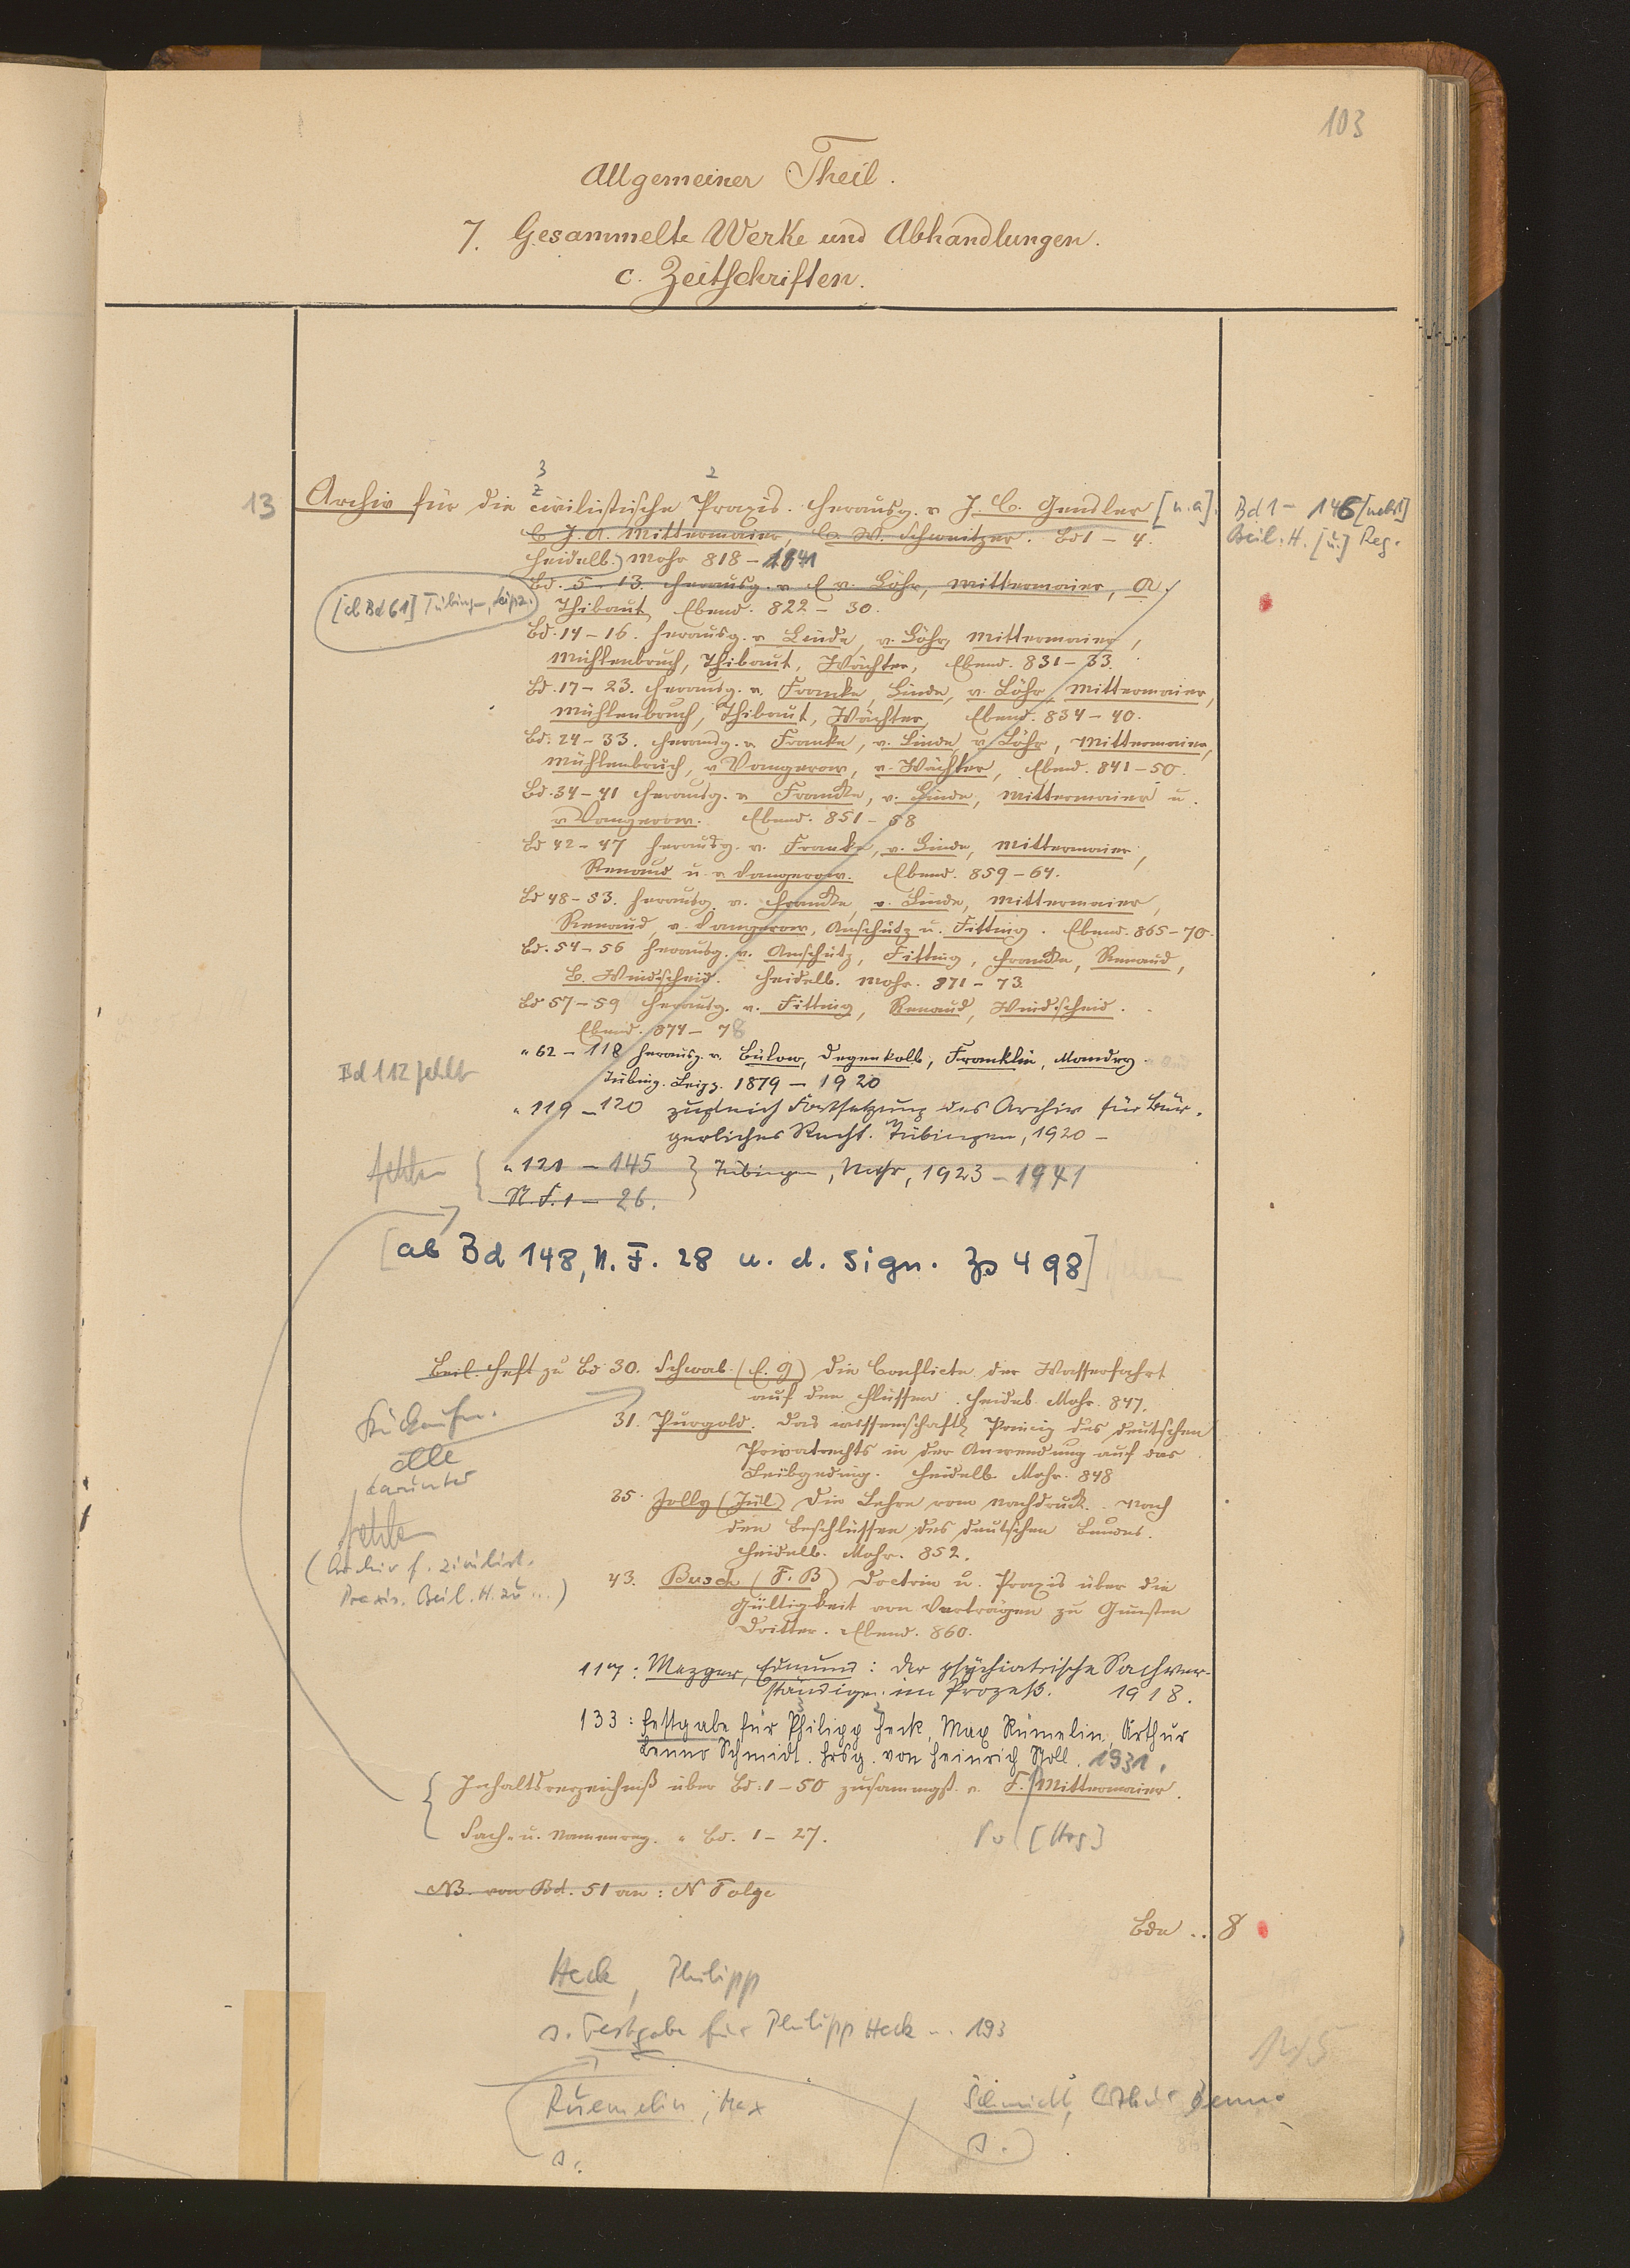 103
Allgemeiner Theil.
7. Gesammelte Werke und Abhandlungen.
c. Zeitschriften.
3 2
z
13 Archiv für die civilistische Praxis. Herausg. v J. C. Gensler [u. a]. Bd 1 - 146 [nebst]
C. J. A. Mittermaier, C. W. Schweitzer. Bd 1 - 4. Beil. H. [u.] Reg.
Heidelb. Mohr 818 - 1841
Bd. 5 - 13. Herausg. v E v. Löhr, Mittermaier, A.
[ab Bd 61] Tübingen, Leipz. Thibaut, Ebend. 822 - 30.
Bd. 14 - 16. Herausg. v Linde, v. Löhr, Mittermaier,
Mühlenbruch, Thibaut, Wächter, Ebend. 831 - 33.
Bd. 17 - 23. Herausg. v. Francke, Linde, v. Löhr, Mittermaier,
Mühlenbruch, Thibaut, Wächter, Ebend. 834 - 40.
Bd. 24 - 33. Herausg. v Franke, v. Linde, v Löhr, Mittermaier,
Mühlenbruch, v Vangerow, v. Wächter, Ebend. 841 - 50.
Bd. 34 - 41 Herausg. v Francke, v. Linde, Mittermaier u.
v Vangerow. Ebend. 851 - 58
Bd 42 - 47 Herausg. v. Franke, v. Linde, Mittermaier,
Renaud u. v Vangerow. Ebend. 859 - 64.
Bd 48 - 53. Herausg. v. Francke, v. Linde, Mittermaier,
Renaud, v. Vangerow, Anschütz u. Fitting. Ebend. 865 - 70.
Bd. 54 - 56 Herausg. v. Anschütz, Fitting, Francke, Renaud,
B. Windscheid. Heidelb. Mohr. 871 - 73.
Bd 57 - 59 Herausg. v. Fitting, Renaud, Windscheid.
Ebend. 874 - 78
" 62 - 118 Herausg. v. Bülow, Degenkolb, Franklin, Mandry
Bd 112 fehlt
Tübing. Leipz. 1879 - 1920
" 119 - 120 zugleich Fortsetzung des Archiv für Bür-
gerliches Recht. Tübingen, 1920 -
fehlen { " 121 - 145 } Tübingen, Mohr, 1923 - 1941
N. F. 1 - 26.
[ab Bd 148, N. F. 28 u. d. Sign. Zs 498]
Beil. Heft zu Bd 30. Schwab (E. G) Die Conflicte der Wasserfahrt
auf den Flüssen. Heidelb. Mohr. 847.
31. Purgold. Das wissenschaftl. Princip des deutschen
Privatrechts in der Anwendung auf das
Leibgeding. Heidelb. Mohr. 848
alle
darunter
35. Jolly (Jul) Die Lehre vom Nachdruck. Nach
den Beschlüssen des deutschen Bundes.
Heidelb. Mohr. 852.
fehlen
(Archiv f. zivilist.
Praxis. Beil. H. zu ...)
43. Busch (F. B) Doctrin u. Praxis über die
Gültigkeit von Verträgen zu Gunsten
Dritter. Ebend. 860.
117: Mezger, Edmund: Der psychiatrische Sachver-
ständige im Prozeß. 1918.
133: Festgabe für Philipp Heck, Max Rümelin, Arthur
Benno Schmidt. Hrsg. von Heinrich Stoll. 1931.
Inhaltsverzeichniß über Bd. 1 - 50 zusammengst. v. F. Mittermaier.
Sach- u. Namenreg. " Bd. 1 - 27.
[Hrg]
NB. von Bd. 51 an: N Folge
Bde .. 8
Heck, Philipp
s. Festgabe für Philipp Heck ... 193
Ruemelin, Max
s.
Schmidt, Arthur Benno
s.